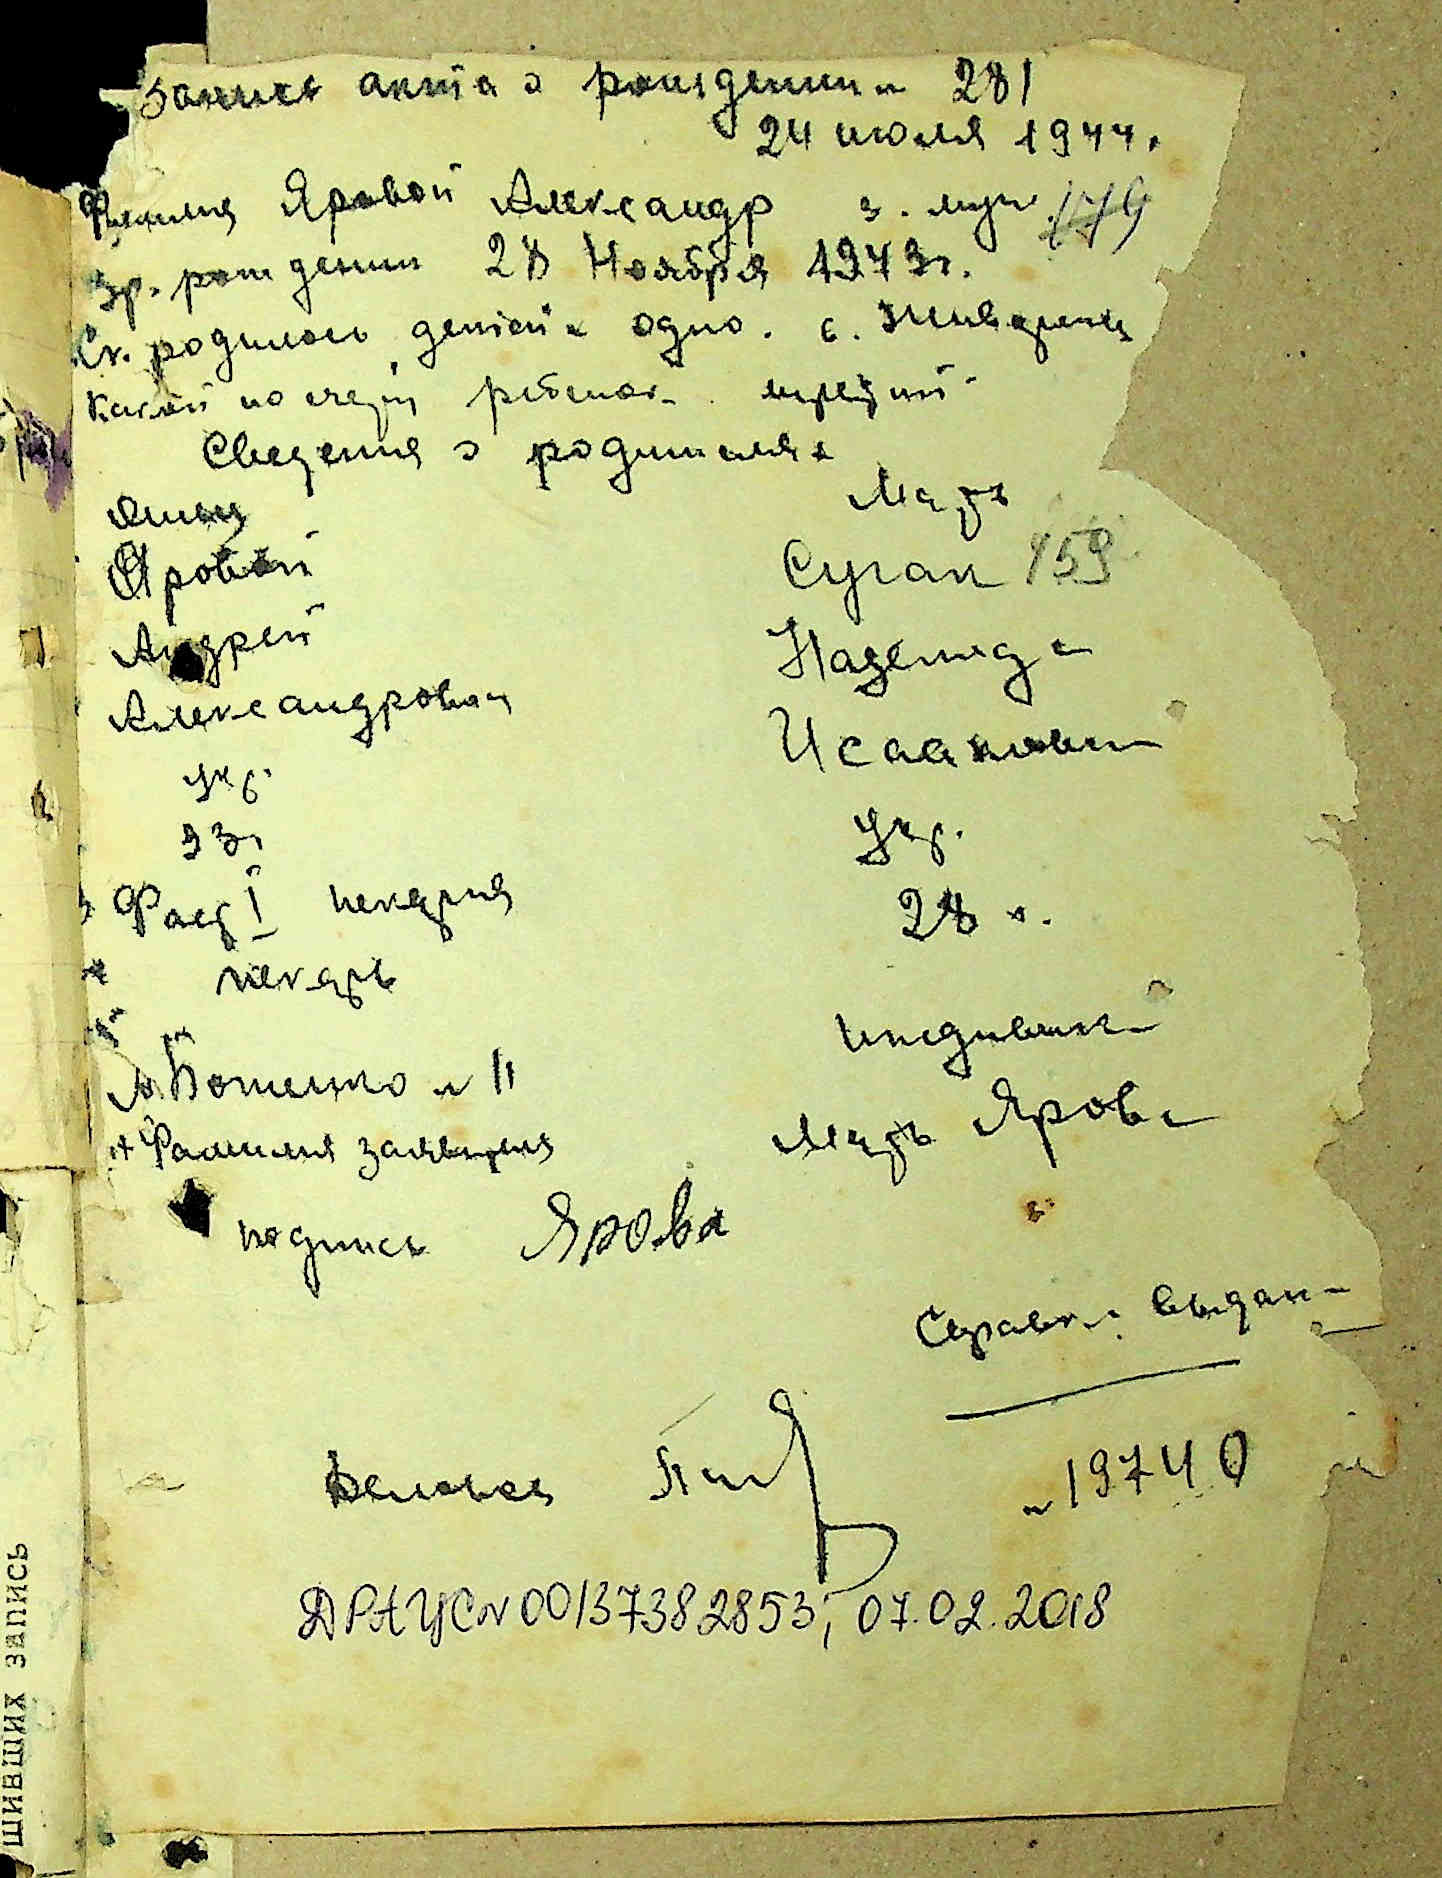 Запись акта о рождении 281
24 июля 1944.
Фамилия Яровой Александр 3. муж. 179
Вр. рождения 28 Ноября 1943 г.
Ск. родилось детей одно. 6.
Какой по счету ребенок третий
Сведения о родителях
Отец Мать
Яровой Суган 159
Андрей Надежда
Александрович Исааковн
укр. Укр.
23 г 28 г.
Фаб I пекарня
пекарь
иждивен
Боженко N 11
Фамилия заявителя Мать Ярова
подпись Ярова
Справка выдан
N 19740
ДРАЦС N 00137382853; 07.02.2018
ШИВШИХ ЗАПИСЬ